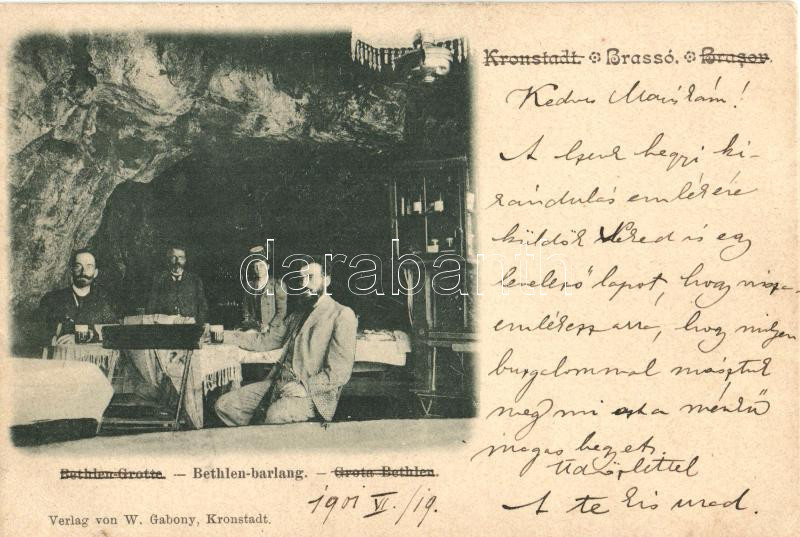 Kronstadt. Brassó. Braşov.
Kedves Mariskám!
A szent hegyi ki-
rándulás emlékére
küldök Neked is egy
levelező lapot, hogy vissza
emlékezz arra, hogy milyen
buzgalommal másztuk
meg mi azt a
magas hegyet.
Üdvözlettel
A te kis urad.
Bethlen-Grotte. — Bethlen-barlang. — Grota Bethlen.
1901 VI./19.
Verlag von W. Gabony, Kronstadt.
darabanth